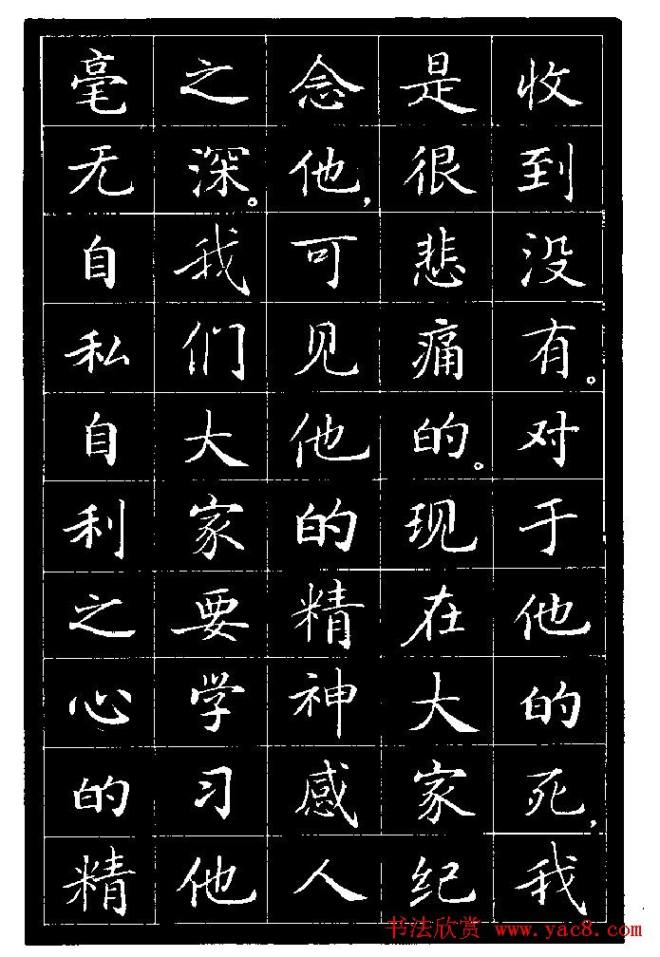 收到没有。对于他的死,我
是很悲痛的。现在大家纪
念他,可见他的精神感人
之深。我们大家要学习他
毫无自私自利之心的精
书法欣赏 www.yac8.com